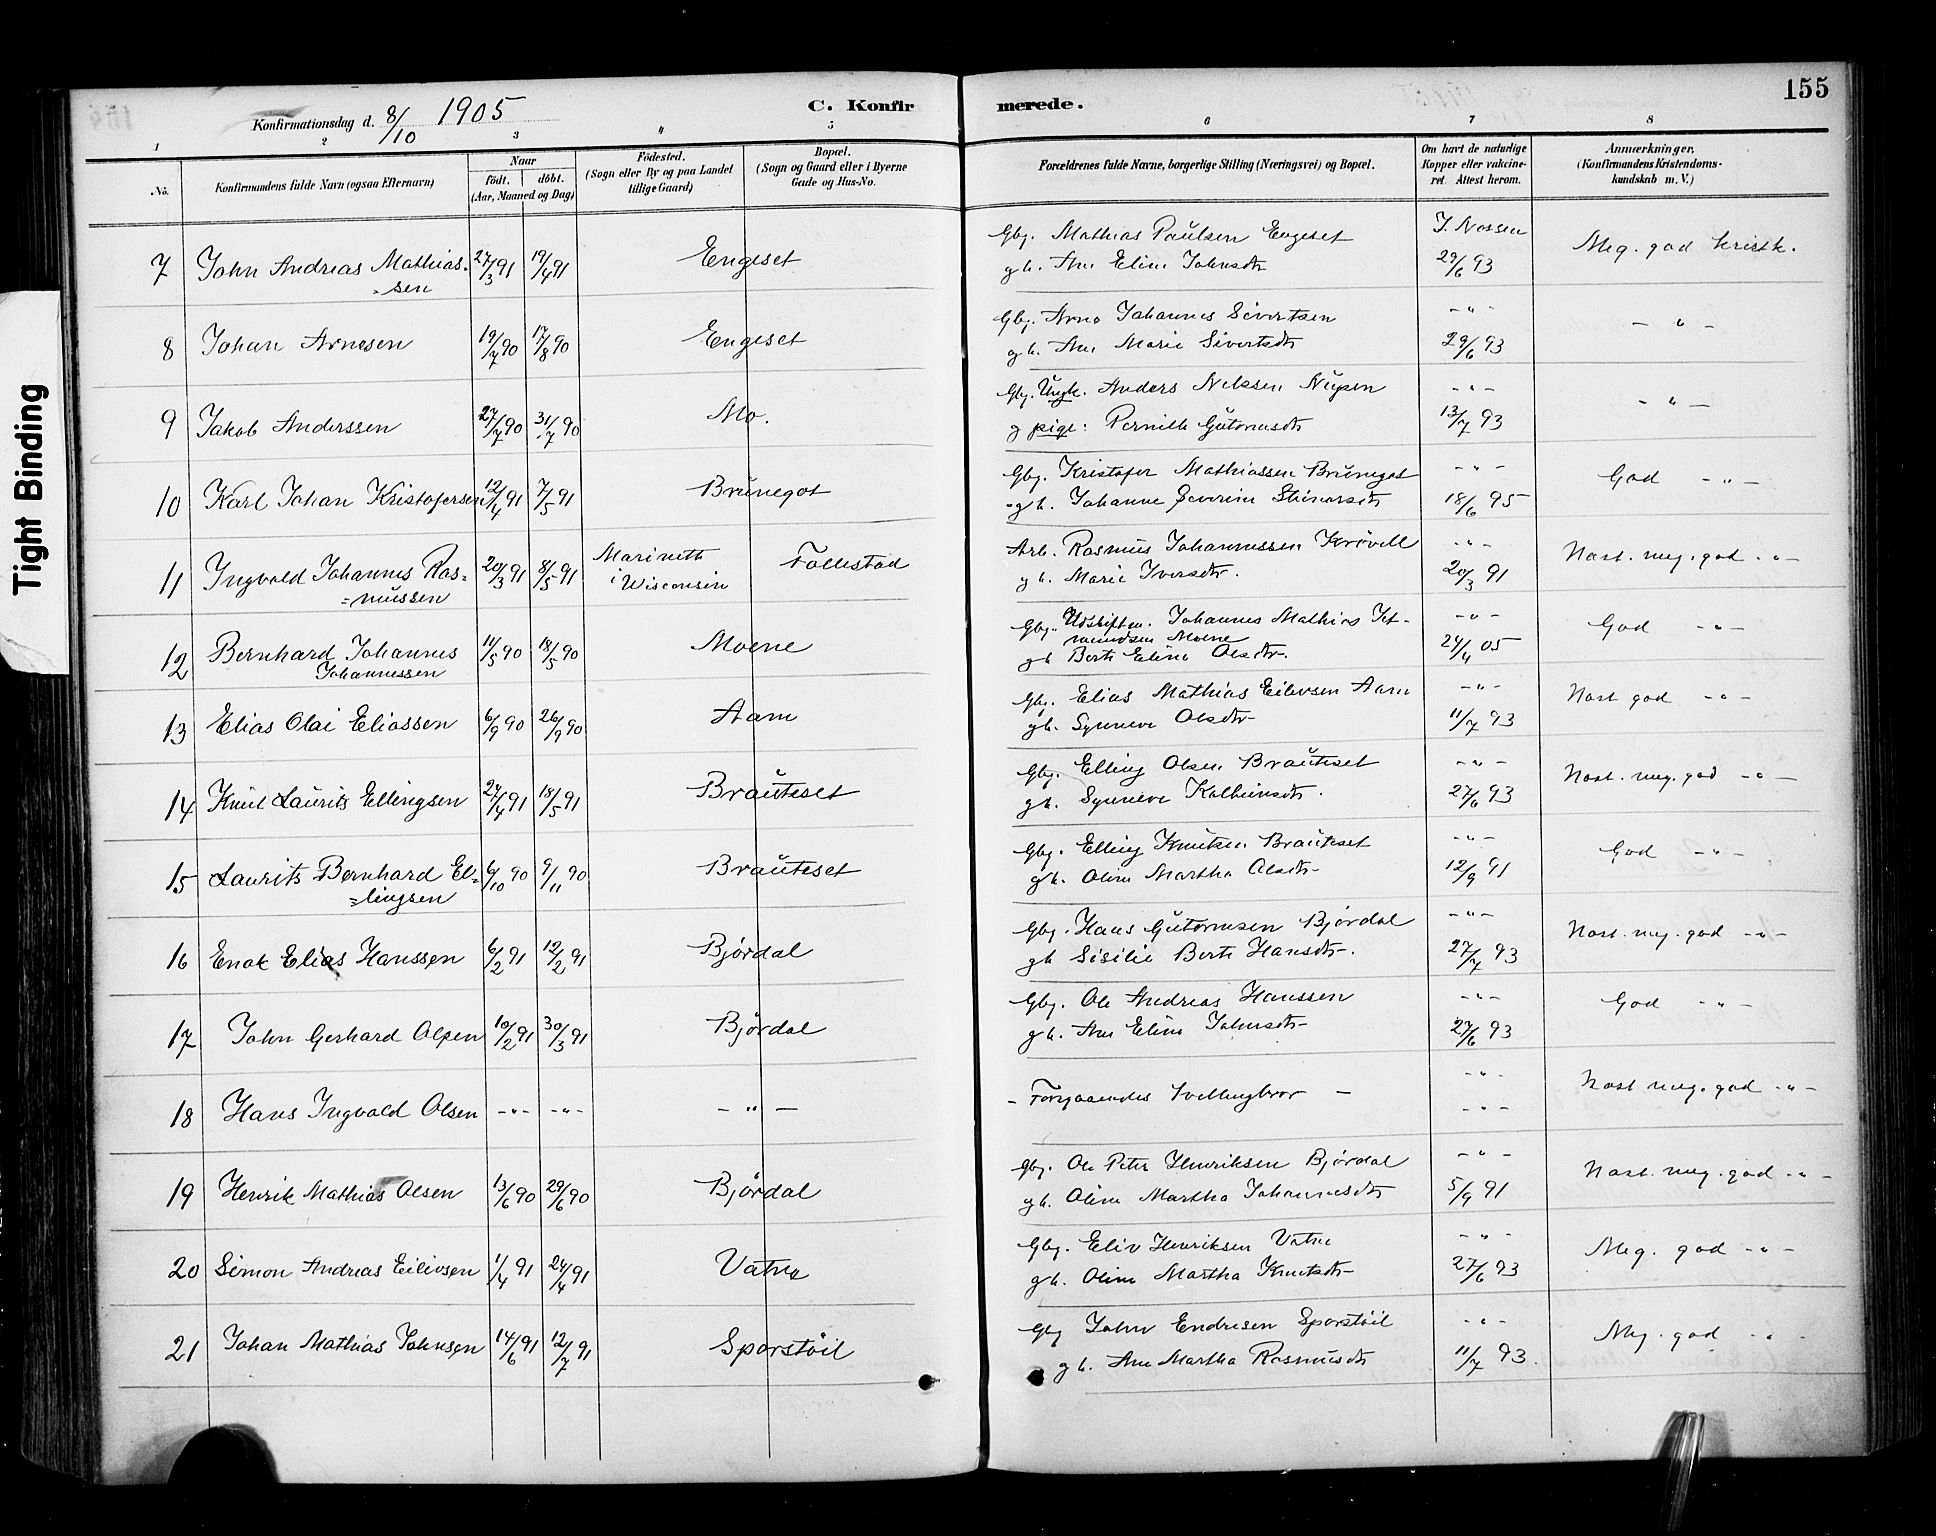 155
Konfirmationsdag d. 8/10 1905
C. Konfirmerede.
1 2 3 4 5 6 7 8
No.
Konfirmandens fulde Navn (ogsaa Efternavn)
Naar
født. døbt.
(Aar, Maaned og Dag)
Födested.
(Sogn eller By og paa Landet
tillige Gaard)
Bopæl.
(Sogn og Gaard eller i Byerne
Gade og Hus-No.
Forældrenes fulde Navne, borgerlige Stilling (Næringsvei) og Bopæl.
Om havt de naturlige
Kopper eller vakcine-
ret. Attest herom.
Anmærkninger.
(Konfirmandens Kristendoms-
kundskab m. V.)
7 John Andreas Mathias- 27/3 91 19/4 91 Engeset Gbg. Mathias Paulsen Engeset J. Nossen Meg. god Kristk.
=sen gh. Ane Eline Johnsdtr 29/6 93
8 Johan Arnesen 19/7 90 17/8 90 Engeset Gbg. Arne Johannes Sivertsen -"- - " -
gh. Ane Marie Sivertsdtr 29/6 93
9 Jakob Anderssen 27/7 90 31/7 90 Mo. Gbg. Ungk. Anders Nilssen -"- - " -
g pige: Pernille Gutormsdtr 13/7 93
10 Karl Johan Kristofersen 12/4 91 7/5 91 Brunegot Gbg. Kristofer Mathiassen Brunegot -"- God -"-
gh. Johanne Severine Steinarsdtr 18/6 95
11 Ingvald Johannes Ras= 20/3 91 8/5 91 Marineth Follestad Arb. Rasmus Johannessen Krøvell -"- Nast. meg. god -"-
=mussen i Wisconsin gh. Marie Iversdtr. 20/3 91
12 Bernhard Johannes 11/5 90 18/5 90 Moene Gbg. Udskiftm. Johannes Mathias Jet- -"- God -"-
Johannessen mundsen Moene
gh Berte Eline Olsdtr. 24/4 05
13 Elias Olai Eliassen 6/9 90 26/9 90 Aam Gbg. Elias Mathias Eilevsen Aam -"- Nast god -"-
gh. Synneve Olsdtr 11/7 93
14 Knut Laurits Ellingsen 27/4 91 18/5 91 Brauteset Gbg. Elling Olsen Brauteset -"- Nast. meg. god -"-
gh. Synneve Kolbeinsdtr. 27/6 93
15 Laurits Bernhard El= 6/10 90 9/11 90 Brauteset Gbg. Elling Knutsen Brauteset -"- God -"-
=lingsen gh. Oline Martha Olsdtr 12/9 91
16 Enok Elias Hanssen 6/2 91 12/2 91 Bjørdal Gbg. Hans Gutormsen Bjørdal -"- Nast. meg. god -"-
gh Sisilie Berte Hansdtr. 27/7 93
17 John Gerhard Olsen 10/2 91 30/3 91 Bjørdal Gbg. Ole Andreas Hanssen -"- God -"-
gh. Ane Eline Johnsdtr 27/6 93
18 Hans Ingvald Olsen -"- -"- - " - - Forgaaendes Tvillingbror - -"- Nast meg. god -"-
-"-
19 Henrik Mathias Olsen 13/6 90 29/6 90 Bjørdal Gbg. Ole Peter Henriksen Bjørdal -"- Nast. meg. god -"-
gh. Oline Martha Johannesdtr 5/9 91
20 Simon Andreas Eilivsen 1/4 91 24/4 91 Vatne Gbg. Eliv Henriksen Vatne -"- Meg. god -"-
gh. Oline Martha Knutsdtr 27/6 93
21 Johan Mathias Johnsen 14/6 91 12/7 91 Sporstöil Gbg John Endresen Sporstöil -"- Meg. god -"-
gh. Ane Martha Rasmusdtr 11/7 93.
Tight Binding